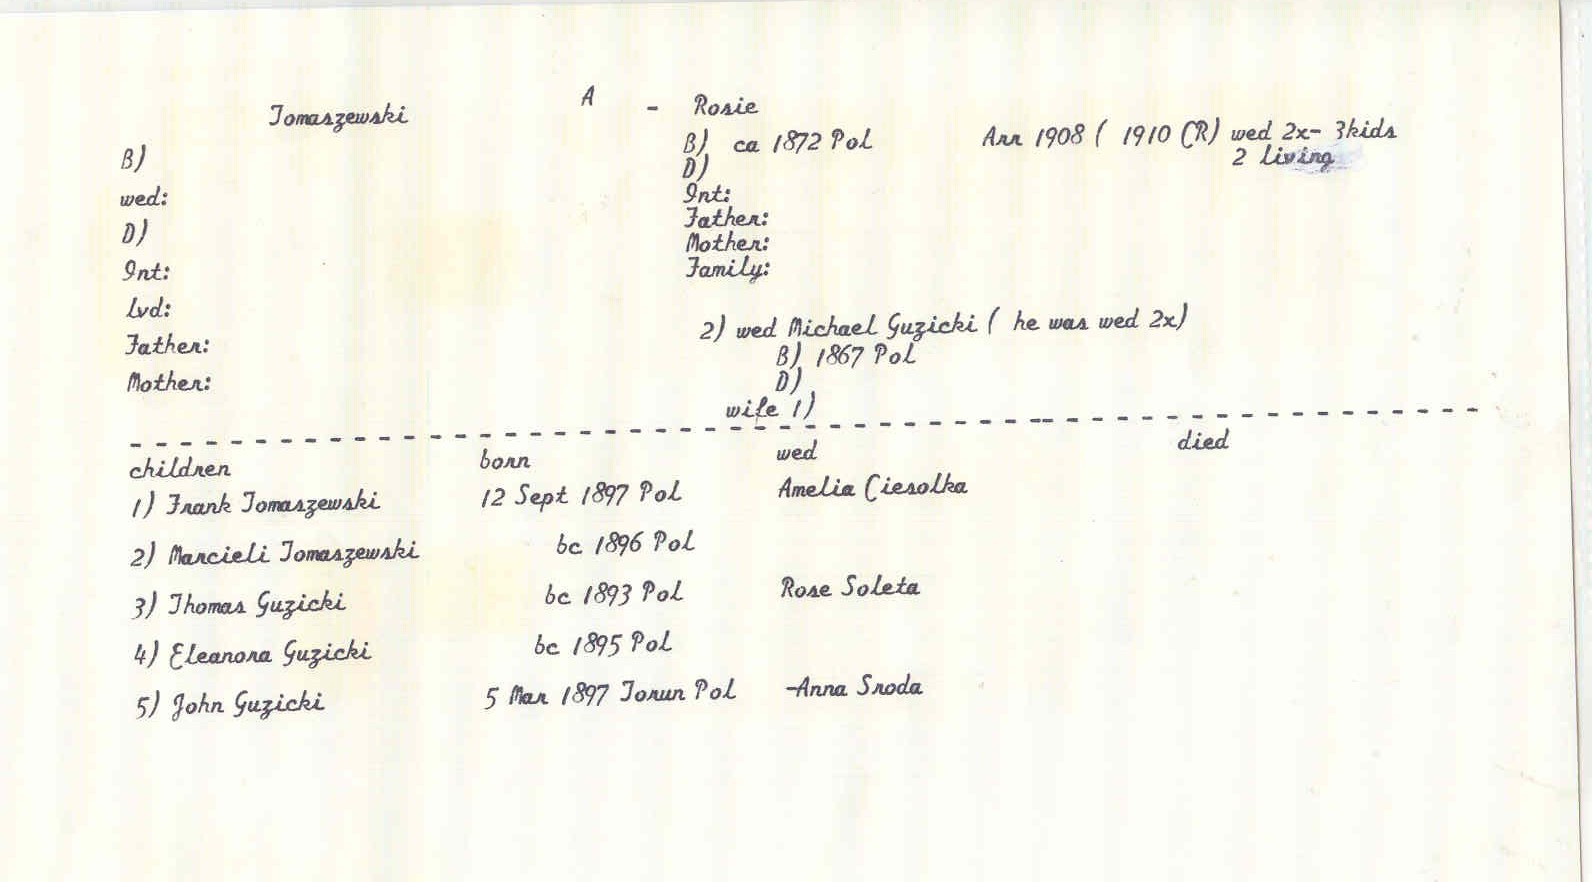 Tomaszewski A - Rosie
B) B) ca 1872 Pol Arr 1908 ( 1910 CR) wed 2x- 3kids
D) 2 living
wed: Int:
D) Father:
Mother:
Int: Family:
Lvd:
2) wed Michael Guzicki ( he was wed 2x)
Father: B) 1867 Pol
Mother: D)
wife 1)
children born wed died
1) Frank Tomaszewski 12 Sept 1897 Pol Amelia Ciesolka
2) Marcieli Tomaszewski bc 1896 Pol
3) Thomas Guzicki bc 1893 Pol Rose Soleta
4) Eleanora Guzicki bc 1895 Pol
5) John Guzicki 5 Mar 1897 Torun Pol -Anna Sroda